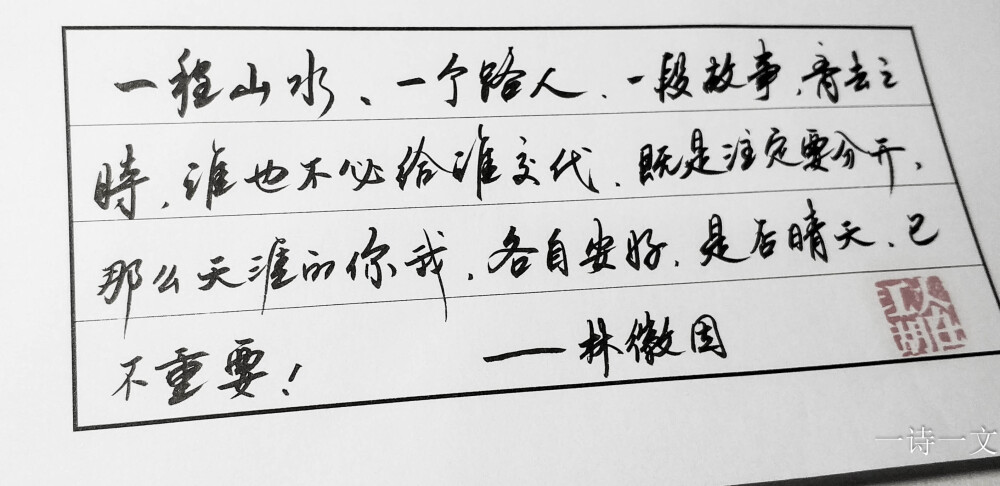 一程山水、一个路人、一段故事，离去之
時，谁也不必给谁交代，既是注定要分开，
那么天涯的你我，各自安好，是否晴天，已
不重要！ ——林徽因
一诗一文